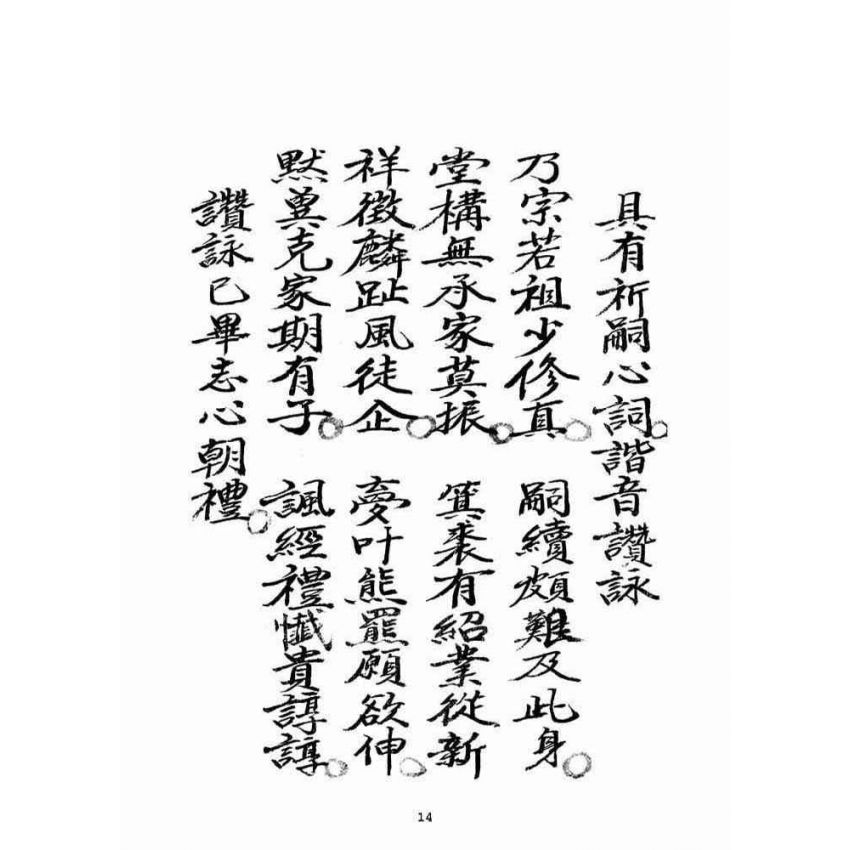 具有祈嗣心詞諧音讚詠
乃宗若祖少修真 嗣續頗難及此身
堂構無承家莫振 箕裘有紹業從新
祥徵麟趾風徒企 夢叶熊羆願欲伸
默冀克家期有子 諷經禮懺貴諄諄
讚詠已畢志心朝禮
14